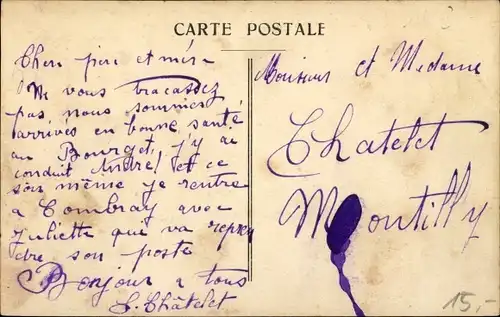 CARTE POSTALE
Chers père et mère
Ne vous tracassez
pas nous sommes
arrives en bonne santé
au Bourget, j'y ai
conduit André, et ce
soir même je rentre
a Combray avec
Juliette que va repren
dre son poste
Bonjour a tous
L. Châtelet
Monsieur et Madame
Chatelet
Montilly
15,-